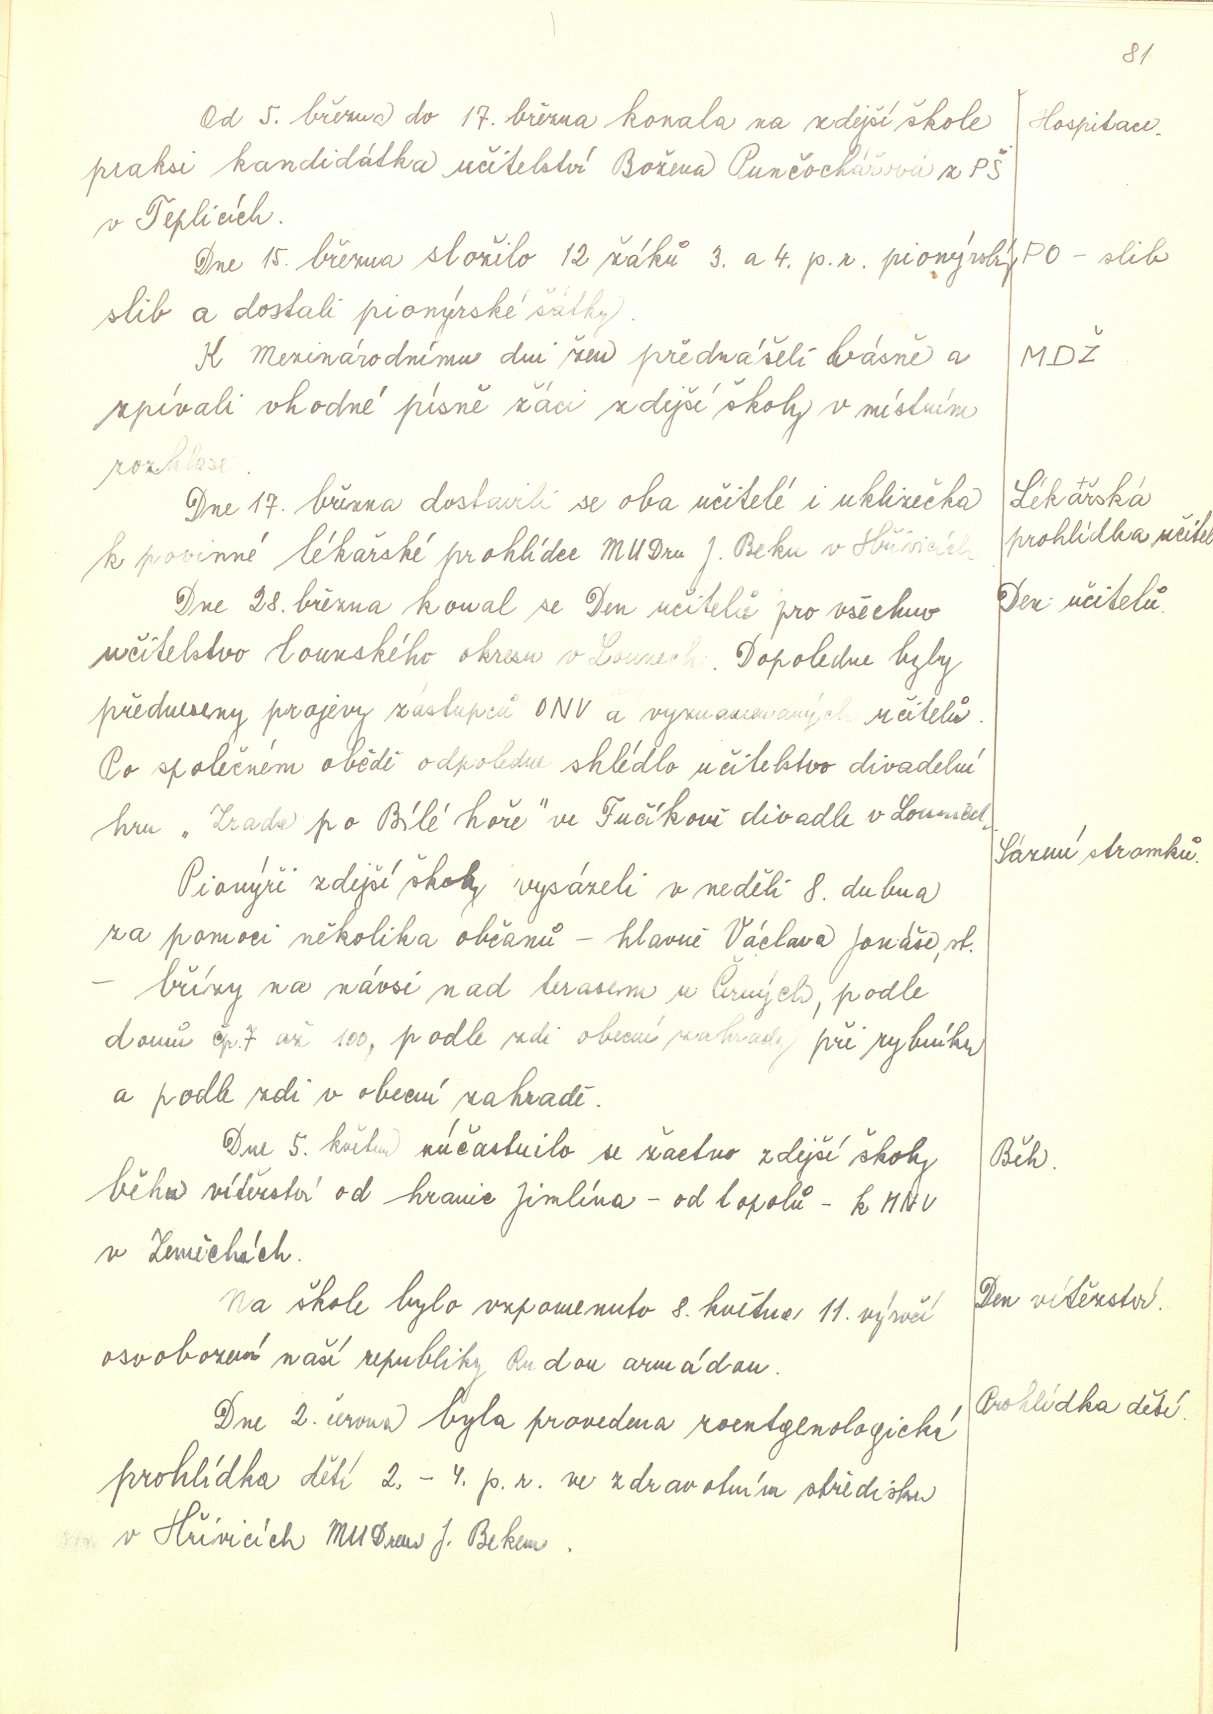 81
Od 5. března do 17. března konala na zdejší škole
Hospitace.
praksi kandidátka učitelství Božena Punčochářová z PŠ
v Teplicích.
Dne 15. března složilo 12 žáků 3. a 4. p. r. pionýrský
PO - slib
slib a dostali pionýrské šátky.
K Mezinárodnímu dni žen přednášeli básně a
MDŽ
zpívali vhodné písně žáci zdejší školy v místním
rozhlase.
Dne 17. března dostavili se oba učitelé i uklizečka
Lékařská
k povinné lékařské prohlídce MUDru J. Beku v Hřivicích
prohlídka učitel
Dne 28. března konal se Den učitelů pro všechno
Den učitelů.
učitelstvo lounského okresu v Lounech. Dopoledne byly
předneseny projevy zástupců ONV a vyznamenaných učitelů.
Po společném obědě odpoledne shlédlo učitelstvo divadelní
hru „Zrada po Bílé hoře" ve Fučíkově divadle v Lounech.
Sázení stromků.
Pionýři zdejší školy vysázeli v neděli 8. dubna
za pomoci několika občanů - hlavně Václava Jonáše, st.
- břízy na návsi nad terasem u Černých, podle
domů čp. 7 až 100, podle zdi obecní zahrady při rybníku
a podle zdi v obecní zahradě.
Dne 5. května zúčastnilo se žactvo zdejší školy
Běh.
běhu vítězství od hranic Jimlína - od topolů - k MNV
v Zeměchách.
Na škole bylo vzpomenuto 8. května 11. výročí
Den vítězství.
osvobození naší republiky Rudou armádou.
Dne 2. června byla provedena roentgenologická
Prohlídka dětí.
prohlídka dětí 2. - 4. p. r. ve zdravotním středisku
v Hřivicích MUDrem J. Bekem.